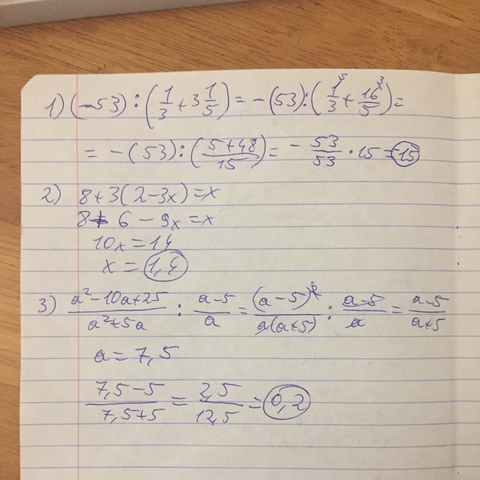 1) (-53) : (1/3 + 3 1/5) = -(53) : (1/3 ⁵ + 16/5 ³) =
= -(53) : ((5+48)/15) = - 53/53 · 15 = -15
2) 8+3(2-3x)=x
8+6-9x=x
10x=14
x = 1,4
3) (a²-10a+25)/(a²+5a) : (a-5)/a = (a-5)²/(a(a+5)) : (a-5)/a = (a-5)/(a+5)
a=7,5
(7,5-5)/(7,5+5) = 2,5/12,5 = 0,2